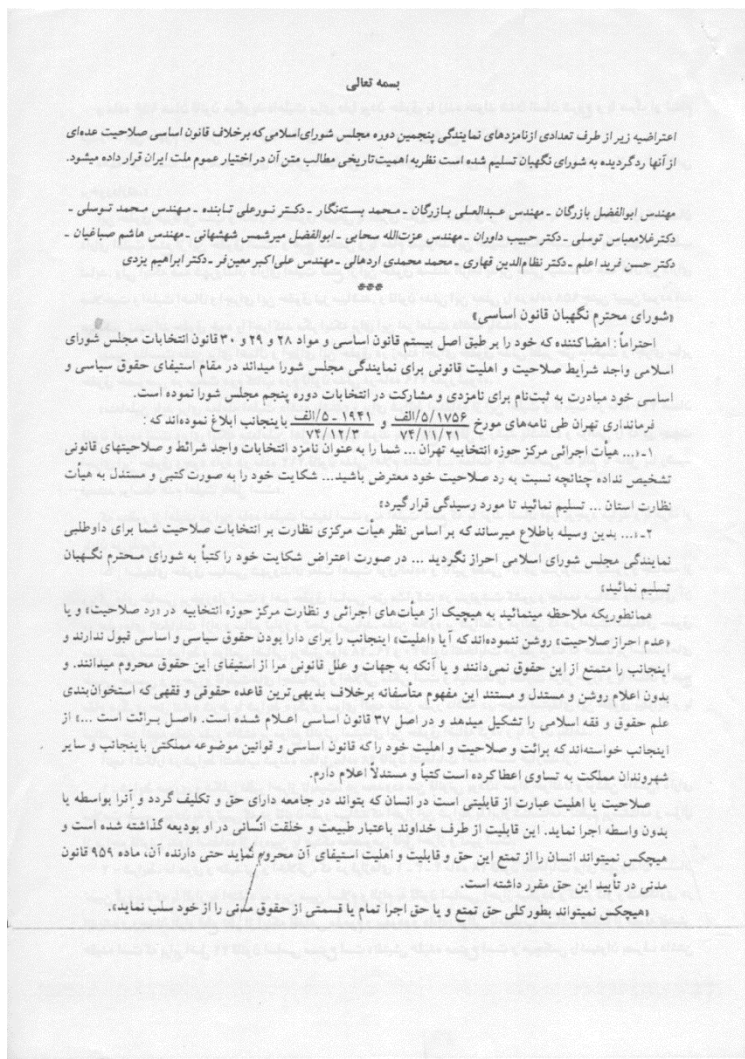 بسمه تعالی
اعتراضیه زیر از طرف تعدادی ازنامزدهای نمایندگی پنجمین دوره مجلس شورای‌اسلامی که برخلاف قانون اساسی صلاحیت عده‌ای
از آنها ردگردیده به شورای نگهبان تسلیم شده است نظربه اهمیت‌تاریخی مطالب متن آن در اختیار عموم ملت ایران قرار داده میشود.
مهندس ابوالفضل بازرگان ـ مهندس عبدالعلی بازرگان ـ محمد بسته‌نگار ـ دکتر نورعلی تابنده ـ مهندس محمد توسلی ـ
دکترغلامعباس توسلی ـ دکتر حبیب داوران ـ مهندس عزت‌الله سحابی ـ ابوالفضل میرشمس شهشهانی ـ مهندس هاشم صباغیان ـ
دکتر حسن فرید اعلم ـ دکتر نظام‌الدین قهاری ـ محمد محمدی اردهالی ـ مهندس علی‌اکبر معین‌فر ـ دکتر ابراهیم یزدی
***
«شورای محترم نگهبان قانون اساسی»
احتراماً: امضاکننده که خود را بر طبق اصل بیستم قانون اساسی و مواد ۲۸ و ۲۹ و ۳۰ قانون انتخابات مجلس شورای
اسلامی واجد شرایط صلاحیت و اهلیت قانونی برای نمایندگی مجلس شورا میداند در مقام استیفای حقوق سیاسی و
اساسی خود مبادرت به ثبت‌نام برای نامزدی و مشارکت در انتخابات دوره پنجم مجلس شورا نموده است.
فرمانداری تهران طی نامه‌های مورخ ۵/۱۷۵۶/الف ۷۴/۱۱/۲۱ و ۱۹۴۱-۵/الف ۷۴/۱۲/۳ باینجانب ابلاغ نموده‌اند که :
۱-«... هیأت اجرائی مرکز حوزه انتخابیه تهران ... شما را به عنوان نامزد انتخابات واجد شرائط و صلاحیتهای قانونی
تشخیص نداده چنانچه نسبت به رد صلاحیت خود معترض باشید... شکایت خود را به صورت کتبی و مستدل به هیأت
نظارت استان ... تسلیم نمائید تا مورد رسیدگی قرار گیرد»
۲-«... بدین وسیله باطلاع میرساند که بر اساس نظر هیأت مرکزی نظارت بر انتخابات صلاحیت شما برای داوطلبی
نمایندگی مجلس شورای اسلامی احراز نگردید ... در صورت اعتراض شکایت خود را کتباً به شورای محترم نگهبان
تسلیم نمائید»
همانطوریکه ملاحظه مینمائید به هیچیک از هیأت‌های اجرائی و نظارت مرکز حوزه انتخابیه در «رد صلاحیت» و یا
«عدم احراز صلاحیت» روشن ننموده‌اند که آیا «اهلیت» اینجانب را برای دارا بودن حقوق سیاسی و اساسی قبول ندارند و
اینجانب را متمتع از این حقوق نمی‌دانند و یا آنکه به جهات و علل قانونی مرا از استیفای این حقوق محروم میدانند. و
بدون اعلام روشن و مستدل و مستند این مفهوم متأسفانه برخلاف بدیهی‌ترین قاعده حقوقی و فقهی که استخوان‌بندی
علم حقوق و فقه اسلامی را تشکیل میدهد و در اصل ۳۷ قانون اساسی اعلام شده است. «اصل برائت است ...» از
اینجانب خواسته‌اند که برائت و صلاحیت و اهلیت خود را که قانون اساسی و قوانین موضوعه مملکتی باینجانب و سایر
شهروندان مملکت به تساوی اعطا کرده است کتباً و مستدلاً اعلام دارم.
صلاحیت یا اهلیت عبارت از قابلیتی است در انسان که بتواند در جامعه دارای حق و تکلیف گردد و آنرا بواسطه یا
بدون واسطه اجرا نماید. این قابلیت از طرف خداوند باعتبار طبیعت و خلقت انسانی در او بودیعه گذاشته شده است و
هیچکس نمیتواند انسان را از تمتع این حق و قابلیت و اهلیت استیفای آن محروم نماید حتی دارنده آن، ماده ۹۵۹ قانون
مدنی در تأیید این حق مقرر داشته است.
«هیچکس نمیتواند بطورکلی حق تمتع و یا حق اجرا تمام یا قسمتی از حقوق مدنی را از خود سلب نماید».